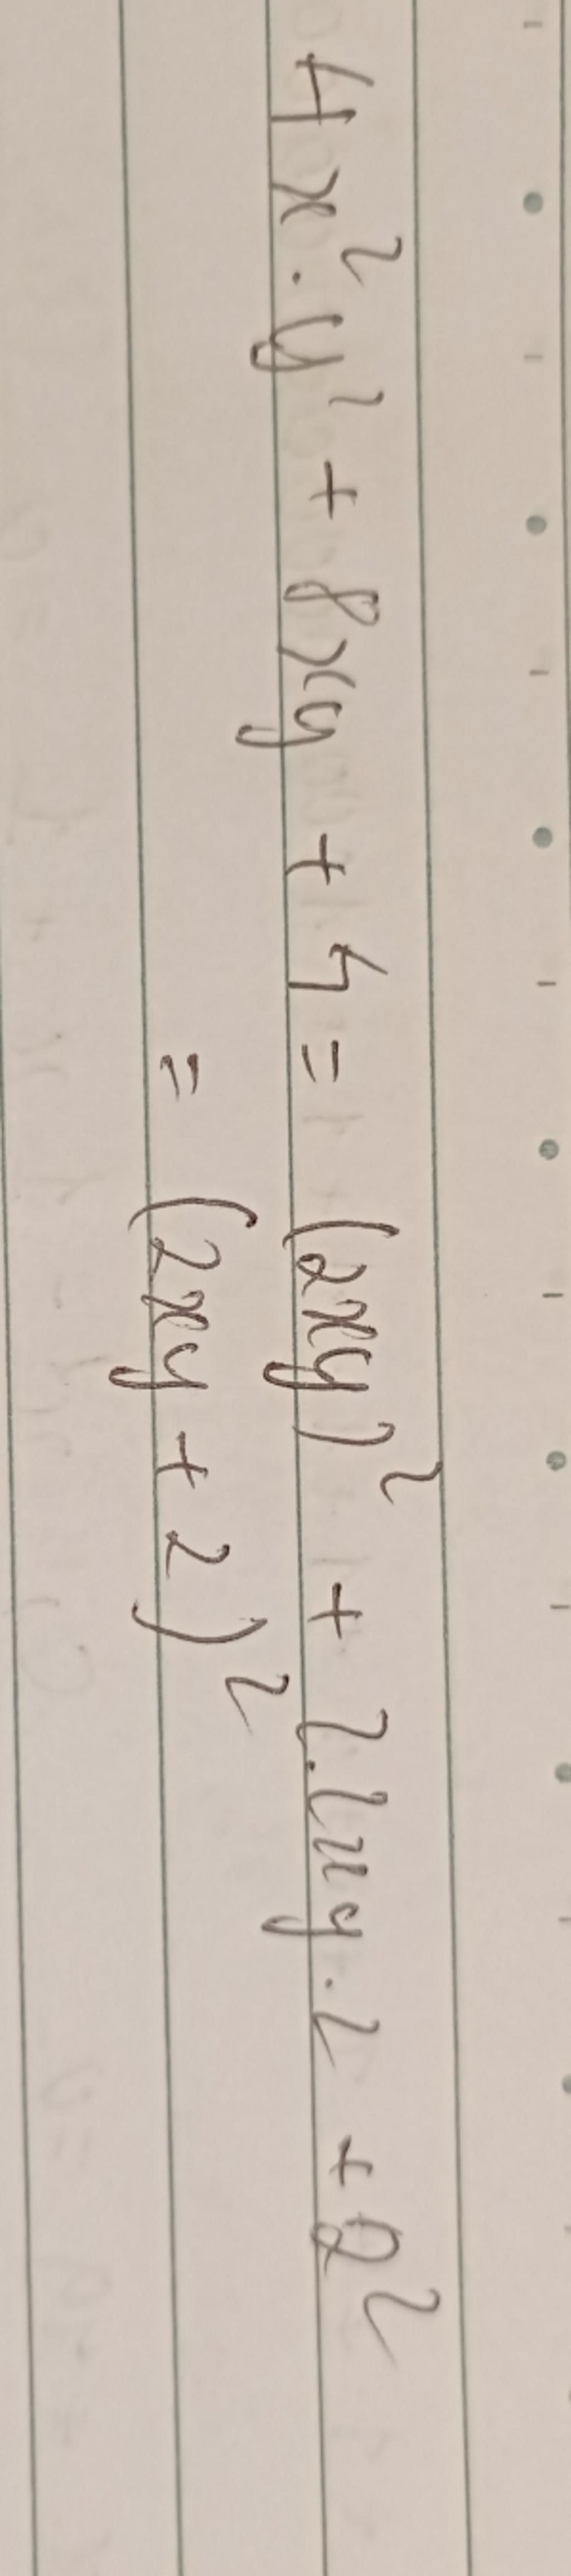 4x². y² + 8xy + 4 = (2xy)² + 2.2xy.2 + 2²
= (2xy + 2)²